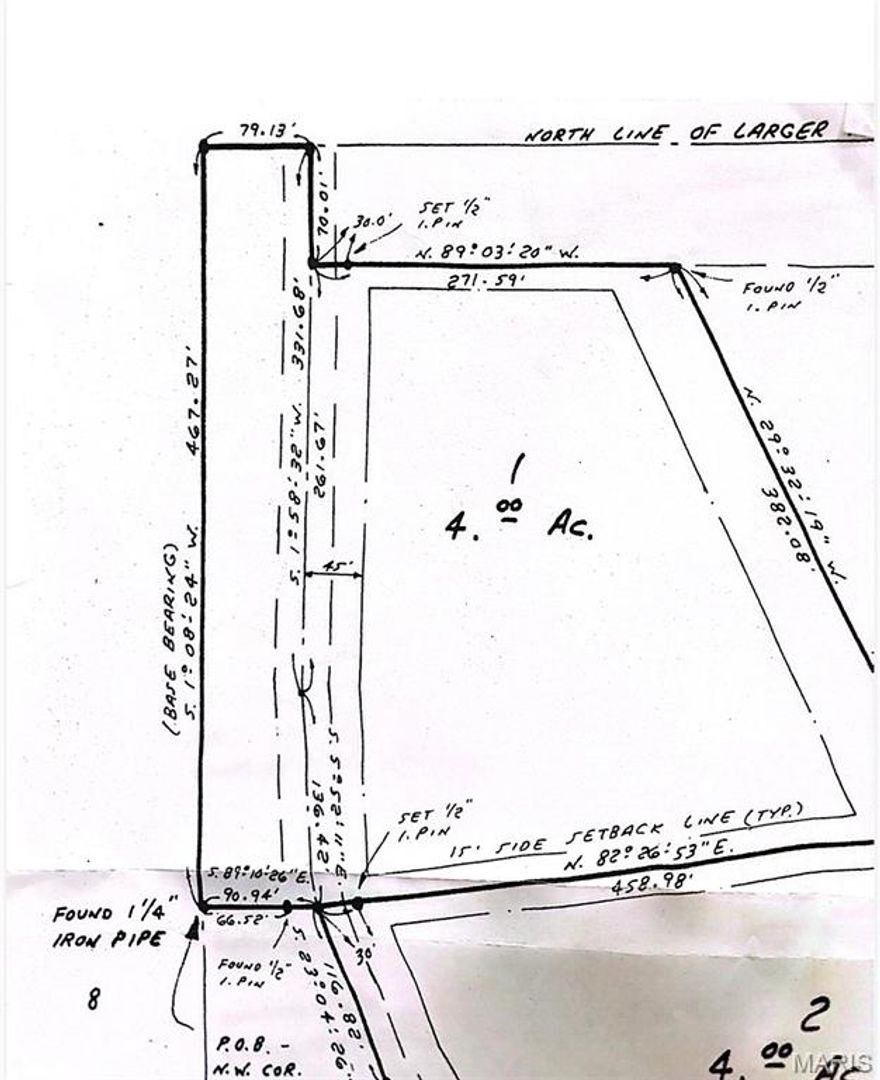 79.13'
NORTH LINE OF LARGER
70.01'
30.0'
SET 1/2"
I. PIN
N. 89°03'20" W.
271.59'
FOUND 1/2"
I. PIN
331.68'
S. 1°58'32" W.
261.67'
467.27'
(BASE BEARING)
S. 1°08'24" W.
N. 29°32'19" W.
382.08'
1
4.00 Ac.
45'
S. 5°52'11" E.
136.42'
SET 1/2"
I. PIN
15' SIDE SETBACK LINE (TYP.)
N. 82°26'53" E.
458.98'
S. 89°10'26" E.
90.94'
66.52'
FOUND 1 1/4"
IRON PIPE
FOUND 1/2"
I. PIN
30'
S. 23°04'26"
116.82'
8
P.O.B. -
N.W. COR.
2
4.00 Ac
MARIS